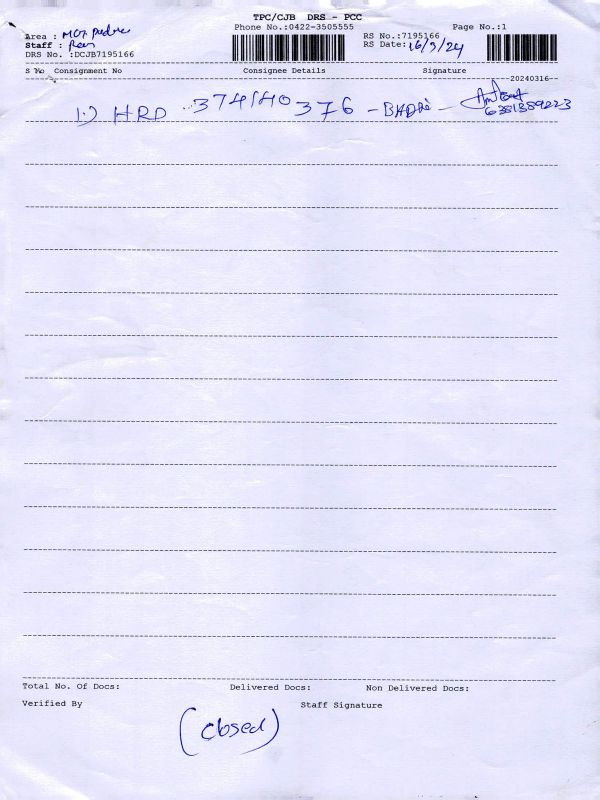 TPC/CJB DRS - PCC
Phone No.:0422-3505555
Page No.:1
Area :
RS No.:7195166
Staff :
RS Date: 16/3/24
DRS No. :DCJB7195166
S No Consignment No Consignee Details Signature
--20240316--
1) HRD 374140376 - BADRi -
6381389223
Total No. Of Docs: Delivered Docs: Non Delivered Docs:
Verified By Staff Signature
(closed)